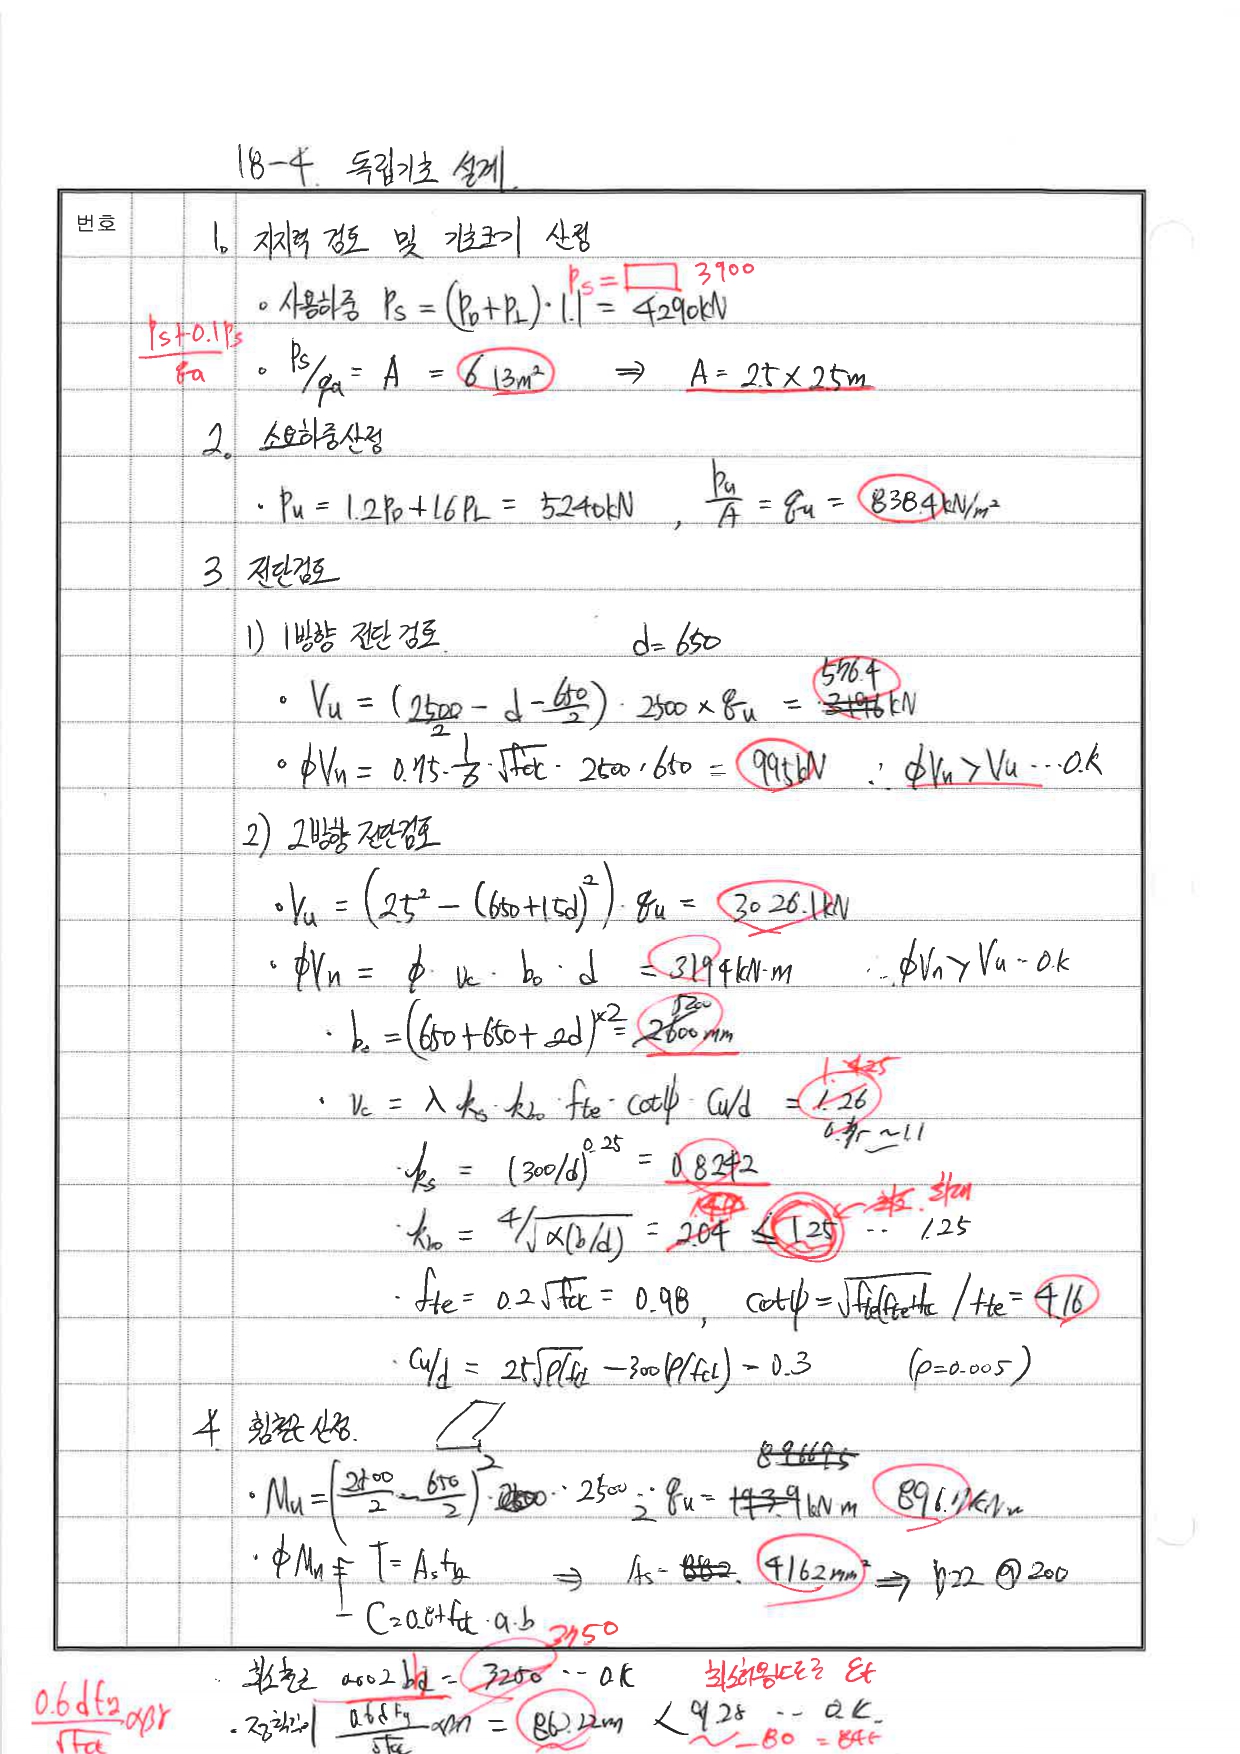 18-4. 독립기초 설계.
번호
1. 지지력 검토 및 기초크기 산정
Ps = 3900
◦ 사용하중 Ps = (PD+PL)·1.1 = 4290kN
Ps+0.1Ps / qa
◦ Ps/qa = A = 6.13m² ⇒ A = 2.5 × 2.5m
2. 소요하중산정
· Pu = 1.2PD+1.6PL = 5240kN , Pu/A = qu = 838.4kN/m²
3. 전단검토
1) 1방향 전단검토. d=650
576.4
◦ Vu = (2500/2 - d - 650/2)·2500 × qu = kN
◦ φVn = 0.75·1/6·√fck·2500·650 = 995kN ∴ φVn > Vu ··· O.K
2) 2방향 전단검토
· Vu = (2.5² - (650+1.5d)²)·qu = 3026.1kN
· φVn = φ · vc · bo · d = 3194kN·m ∴ φVn > Vu - O.K
5200
· bo = (650+650+2d)×2 = 2600mm
1.425
· vc = λ ks·kbo·fte·cotψ·Cu/d = 1.26
~1.1
· ks = (300/d)^0.25 = 0.8242
· kbo = 4/√α(b/d) = 2.04 ≤ 1.25 ·· 1.25
최대
· fte = 0.2√fck = 0.98, cotψ = √fte(fte+fc) / fte = 4.16
· Cu/d = 25√ρ/fck - 300(ρ/fck) - 0.3 (ρ=0.005)
4. 휨철근 산정.
· Mu = (2500/2 - 650/2)² ·· 2500 ·· 2 qu = kN·m 896.11kNm
· φMn T = As fy ⇒ As = 4162mm² ⇒ D22 @ 200
C = 0.85fck·a·b
3750
· 최소철근 0.002bd = 3250 ·· O.K 최소허용변형률 εt
· 정착길이 0.6dfy/√fck αβγ = 862.22mm < 928 ·· O.K.
0.6dfy/√fck αβγ
~ -80 = 845